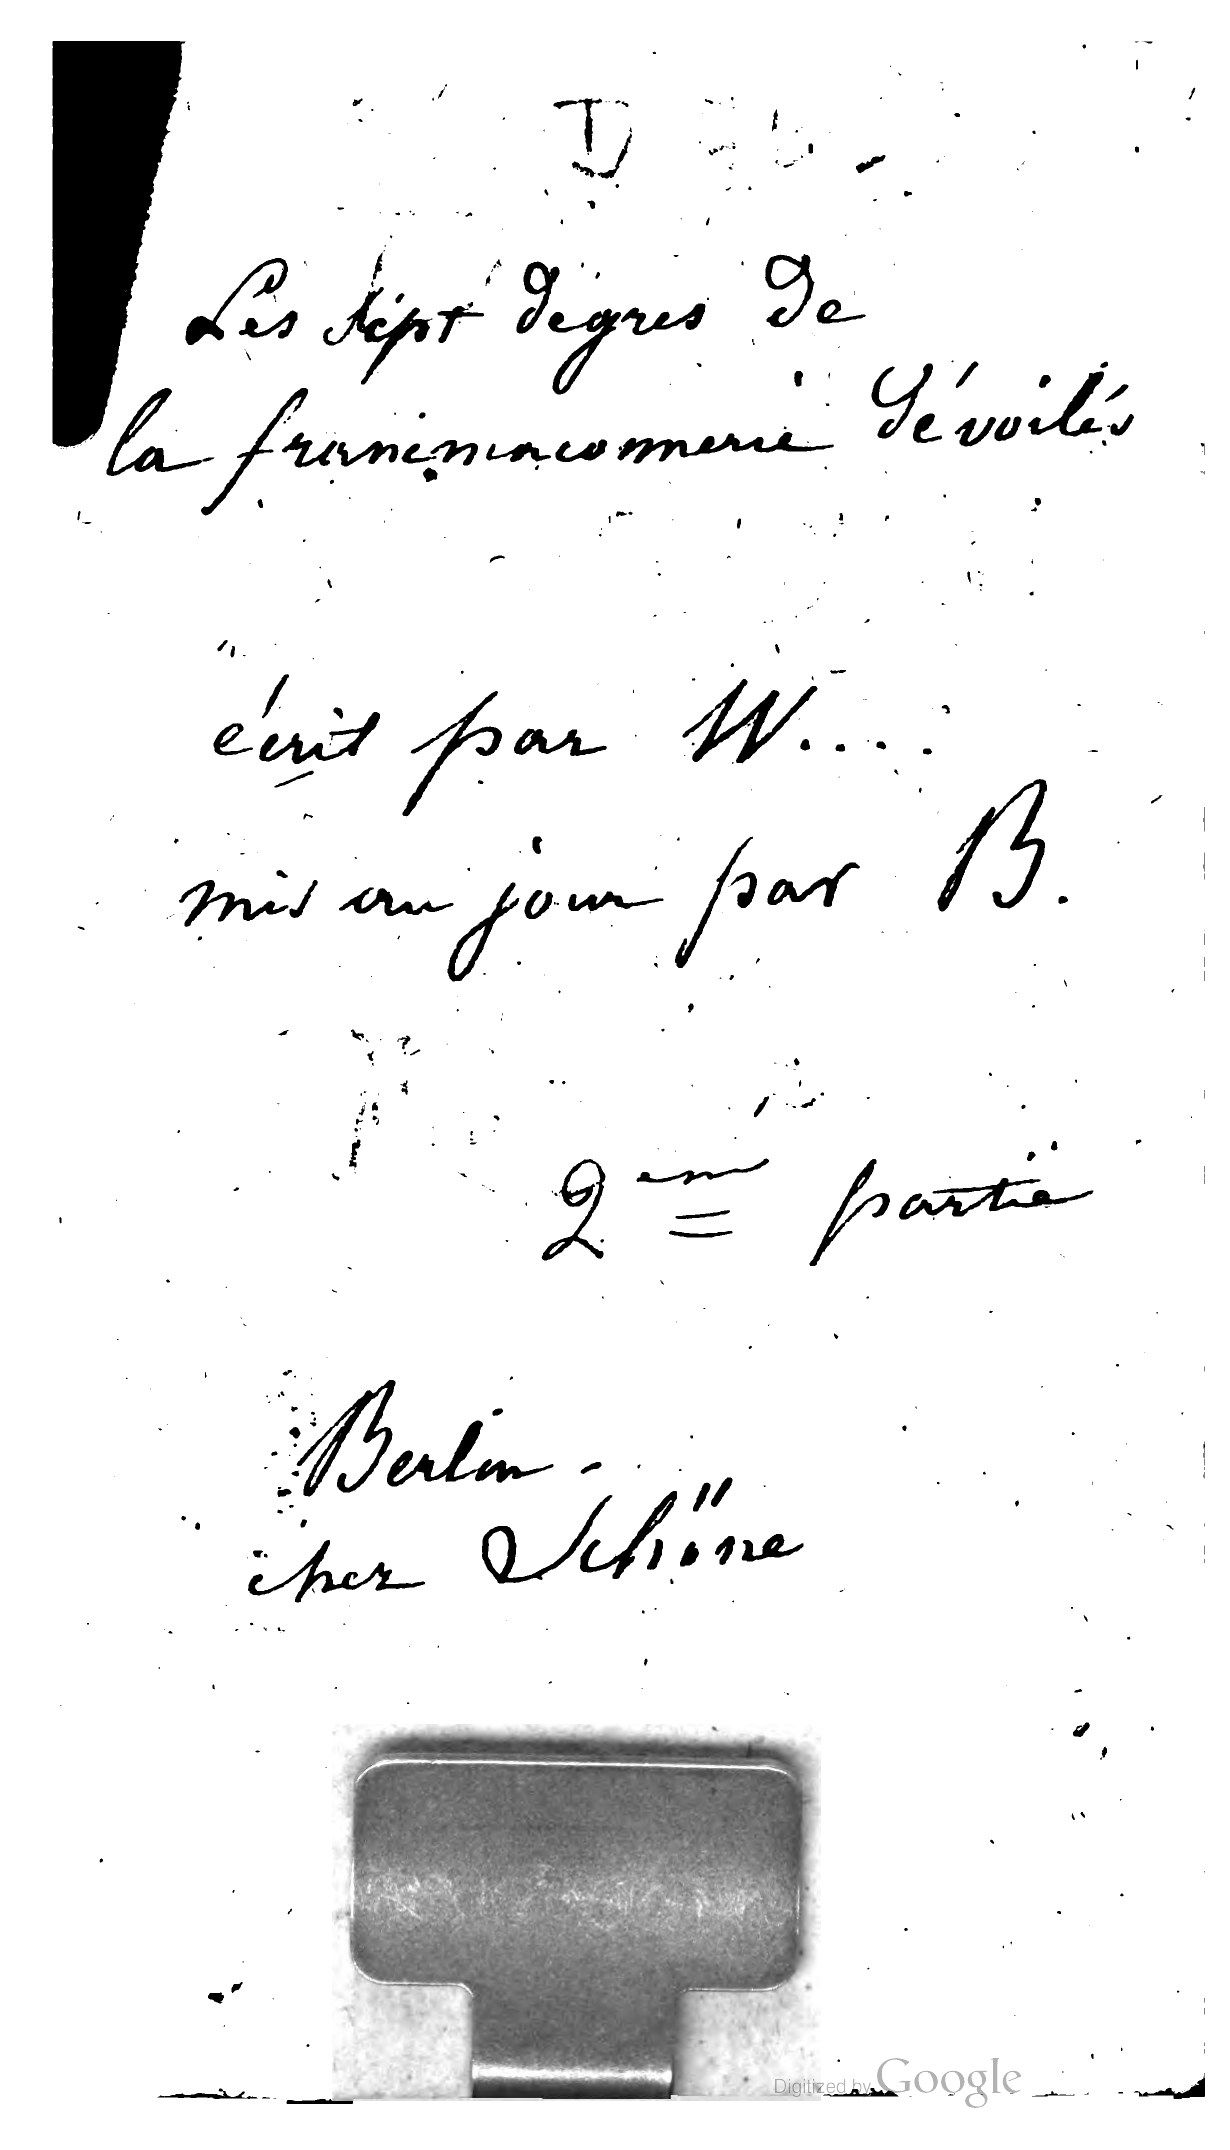 Les sept degres de
la francmaconnerie dévoilés
écrit par W....
mis au jour par B.
2eme partie
Berlin -
chez Schöne
Digitized by Google